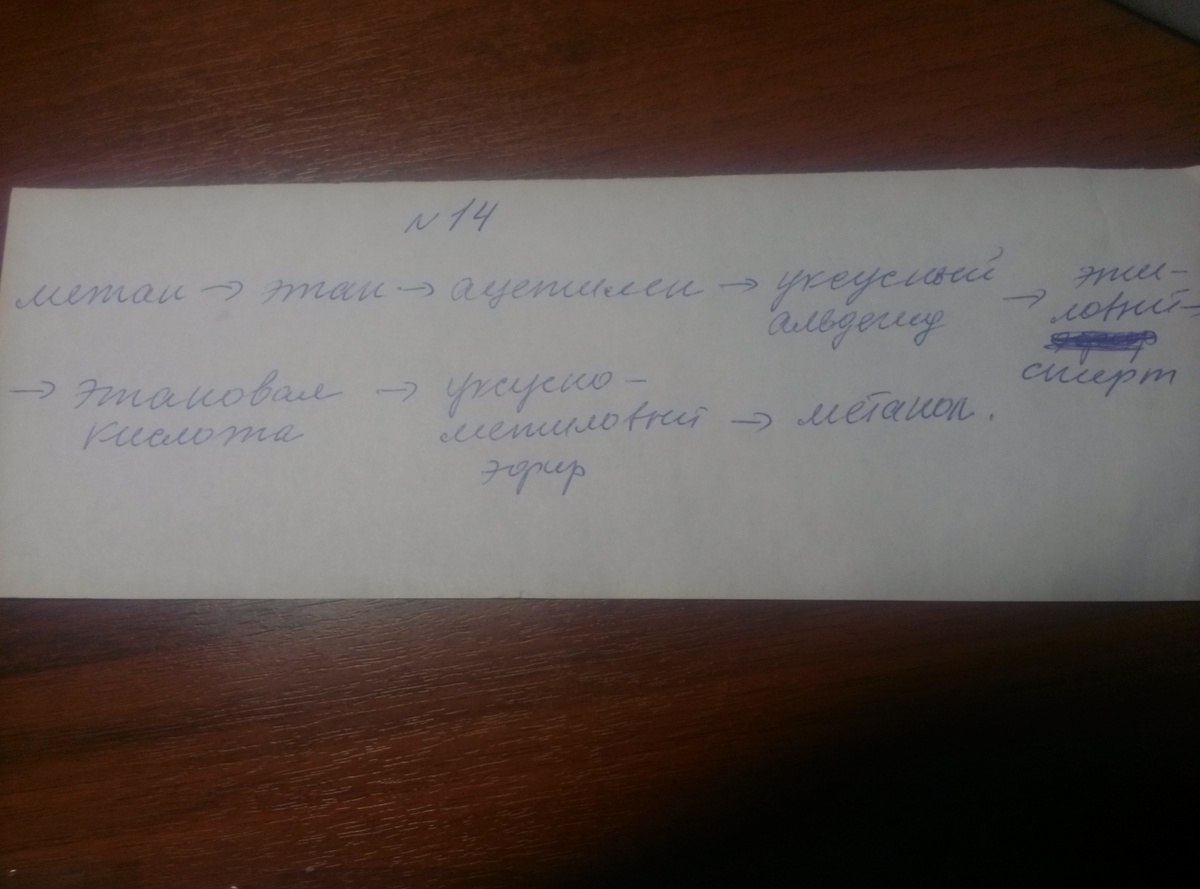 № 14
метан → этан → ацетилен → уксусный альдегид → этиловый спирт →
→ этановая кислота → уксусно-метиловый эфир → метанол.